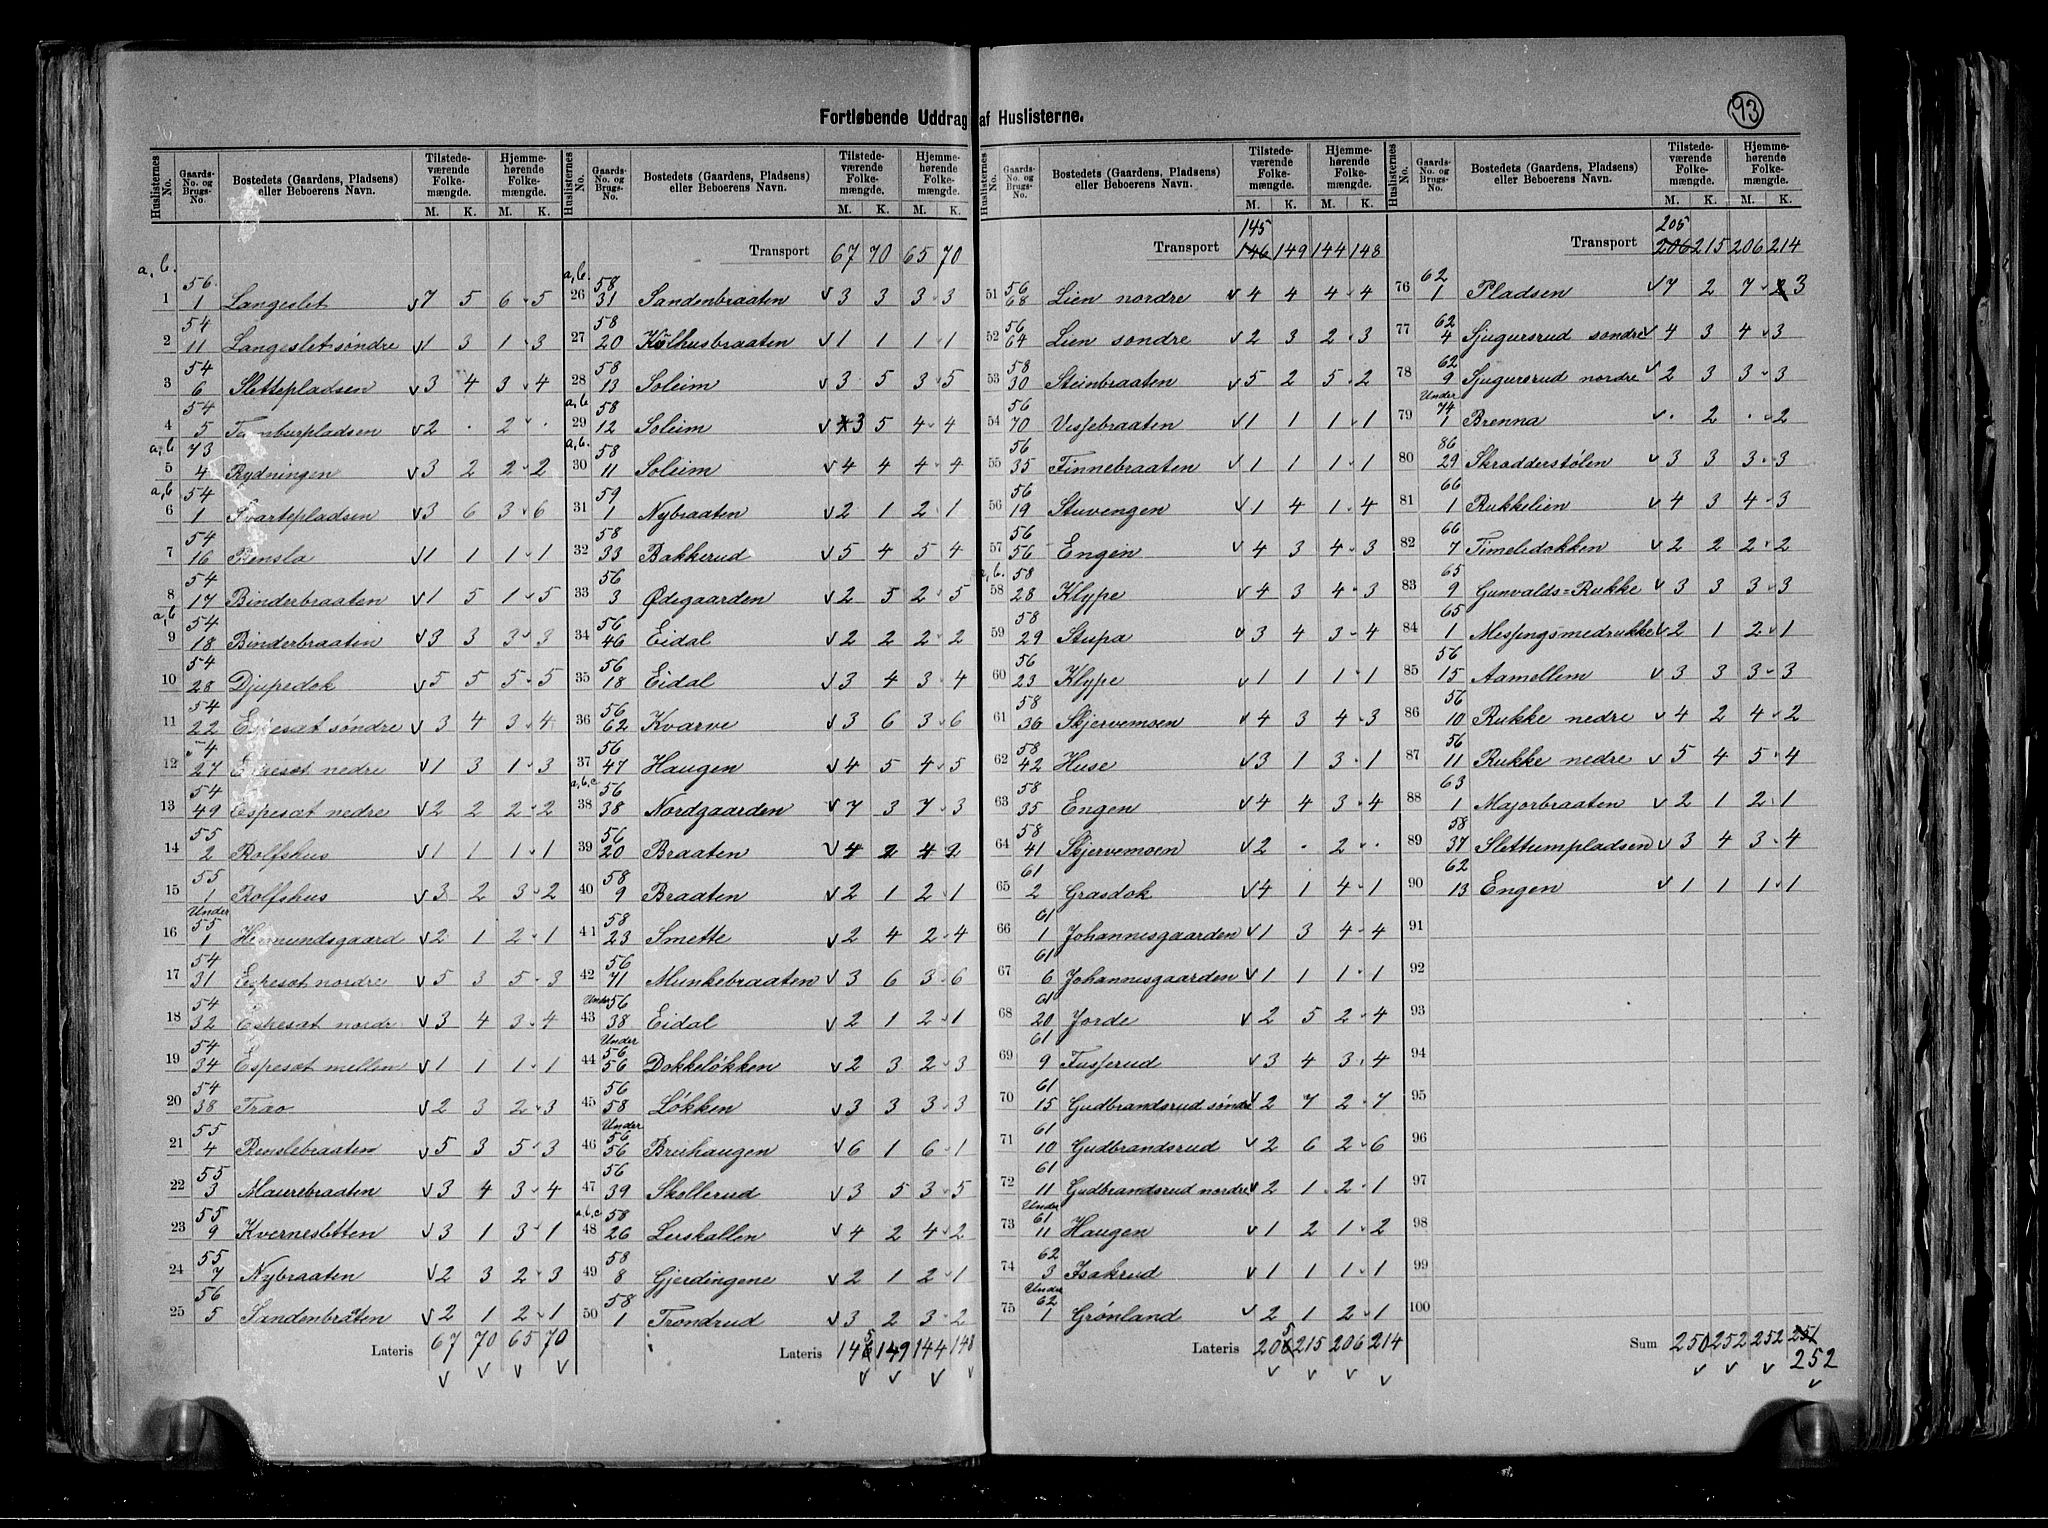 93
Fortløbende Uddrag af Huslisterne.
Huslisternes No. | Gaards-No. og Brugs-No. | Bostedets (Gaardens, Pladsens) eller Beboerens Navn. | Tilstedeværende Folkemængde. M. K. | Hjemmehørende Folkemængde. M. K.
a, b. 1 56/1 Langeslet v 7 5 6 v 5
2 54/11 Langeslet søndre v 1 3 1 v 3
3 54/6 Slettepladsen v 3 4 3 v 4
4 54/5 Tamburpladsen v 2 . 2 v .
a, b 5 73/4 Rydningen v 3 2 2 v 2
a, b 6 54/1 Svartepladsen v 3 6 3 v 6
7 54/16 Rensla v 1 1 1 v 1
8 54/17 Binderbraaten v 1 5 1 v 5
a, b 9 54/18 Binderbraaten v 3 3 3 v 3
10 54/28 Djupedok v 5 5 5 v 5
11 54/22 Espesæt søndre v 3 4 3 v 4
12 54/27 Espesæt nedre v 1 3 1 v 3
13 54/49 Espesæt nedre v 2 2 2 v 2
14 55/2 Rolfshus v 1 1 1 v 1
15 55/1 Rolfshus v 3 2 3 v 2
16 Under 55/1 Hermundsgaard v 2 1 2 v 1
17 54/31 Espesæt nordre v 5 3 5 v 3
18 54/32 Espesæt nordr v 3 4 3 v 4
19 54/34 Espesæt mellem v 1 1 1 v 1
20 54/38 Trao v 2 3 2 v 3
21 55/4 Renslebraaten v 5 3 5 v 3
22 55/3 Maurebraaten v 3 4 3 v 4
23 55/9 Kvernesletten v 3 1 3 v 1
24 55/7 Nybraaten v 2 3 2 v 3
25 56/5 Sandenbråten v 2 1 2 v 1
Lateris 67 70 65 70
v v v v
Huslisternes No. | Gaards-No. og Brugs-No. | Bostedets (Gaardens, Pladsens) eller Beboerens Navn. | Tilstedeværende Folkemængde. M. K. | Hjemmehørende Folkemængde. M. K.
Transport 67 70 65 70
a, b. 26 58/31 Sandenbraaten v 3 3 3 v 3
27 58/20 Kølhusbraaten v 1 1 1 v 1
28 58/13 Soleim v 3 5 3 v 5
a, b 29 58/12 Soleim v 3 5 4 v 4
a, b. 30 58/11 Soleim v 4 4 4 v 4
31 59/1 Nybraaten v 2 1 2 v 1
32 58/33 Bakkerud v 5 4 5 4
33 56/3 Ødegaarden v 2 5 2 v 5
34 56/46 Eidal v 2 2 2 v 2
35 56/18 Eidal v 3 4 3 v 4
36 56/62 Kvarve v 3 6 3 v 6
37 56/47 Haugen v 4 5 4 v 5
a, b, c 38 56/38 Nordgaarden v 7 3 7 v 3
39 56/20 Braaten v 4 2 4 2
40 58/9 Braaten v 2 1 2 v 1
41 58/23 Smette v 2 4 2 v 4
42 56/71 Munkebraaten v 3 6 3 v 6
43 Under 56/38 Eidal v 2 1 2 v 1
44 Under 56/56 Dokkeløkken v 2 3 2 v 3
45 56/58 Løkken v 3 3 3 v 3
46 Under 56/56 Breihaugen v 6 1 6 v 1
47 56/39 Skollerud v 3 5 3 v 5
a, b, c 48 58/26 Lerskallen v 4 2 4 v 2
49 58/8 Gjerdingene v 2 1 2 v 1
50 58/1 Trondrud v 3 2 3 v 2
Lateris 145 149 144 148
v v v v
Huslisternes No. | Gaards-No. og Brugs-No. | Bostedets (Gaardens, Pladsens) eller Beboerens Navn. | Tilstedeværende Folkemængde. M. K. | Hjemmehørende Folkemængde. M. K.
145
Transport 146 149 144 148
51 56/68 Lien nordre v 4 4 4 v 4
52 56/64 Lien søndre v 2 3 2 v 3
53 58/30 Steinbraaten v 5 2 5 v 2
54 56/70 Vissebraaten v 1 1 1 v 1
55 56/35 Finnebraaten v 1 1 1 v 1
56 56/19 Stuvengen v 1 4 1 v 4
57 56/56 Engen v 4 3 4 v 3
a, b. 58 58/28 Klype v 4 3 4 v 3
59 58/29 Stupa v 3 4 3 v 4
60 56/23 Klype v 1 1 1 v 1
61 58/36 Skjervemoen v 4 3 4 v 3
62 58/42 Huse v 3 1 3 v 1
63 58/35 Engen v 4 4 3 v 4
64 58/41 Skjervemoen v 2 . 2 v .
65 61/2 Grasdok v 4 1 4 v 1
66 61/1 Johannisgaarden v 1 3 4 v 4
67 61/6 Johannisgaarden v 1 1 1 v 1
68 61/20 Jorde v 2 5 2 v 4
69 61/9 Fusserud v 3 4 3 v 4
70 61/15 Gudbrandsrud søndre v 2 7 2 v 7
71 61/10 Gudbrandsrud v 2 6 2 v 6
72 61/11 Gudbrandsrud nordre v 2 1 2 v 1
73 Under 61/11 Haugen v 1 2 1 v 2
74 62/3 Isakrud v 1 1 1 v 1
75 Under 62/1 Grønland v 2 1 2 v 1
Lateris 205 215 206 214
v v v v
Huslisternes No. | Gaards-No. og Brugs-No. | Bostedets (Gaardens, Pladsens) eller Beboerens Navn. | Tilstedeværende Folkemængde. M. K. | Hjemmehørende Folkemængde. M. K.
205
Transport 206 215 206 214
76 62/1 Pladsen v 7 2 7 v 2 3
77 62/4 Sjugursrud søndre v 4 3 4 v 3
78 62/9 Sjugursrud nordre v 2 3 3 v 3
79 Under 74/1 Brenna v . 2 . v 2
80 86/29 Skradderstølen v 3 3 3 v 3
81 66/1 Rukkelien v 4 3 4 v 3
82 66/7 Timelidokken v 2 2 2 v 2
83 65/9 Gunvalds=Rukke v 3 3 3 v 3
84 65/1 Messingsmedrukke v 2 1 2 v 1
85 56/15 Aamellem v 3 3 3 v 3
86 56/10 Rukke nedre v 4 2 4 v 2
87 56/11 Rukke nedre v 5 4 5 v 4
88 63/1 Majorbraaten v 2 1 2 v 1
89 58/37 Slettumpladsen v 3 4 3 v 4
90 62/13 Engen v 1 1 1 v 1
91
92
93
94
95
96
97
98
99
100
Sum 250 252 252 251
252
v v v v